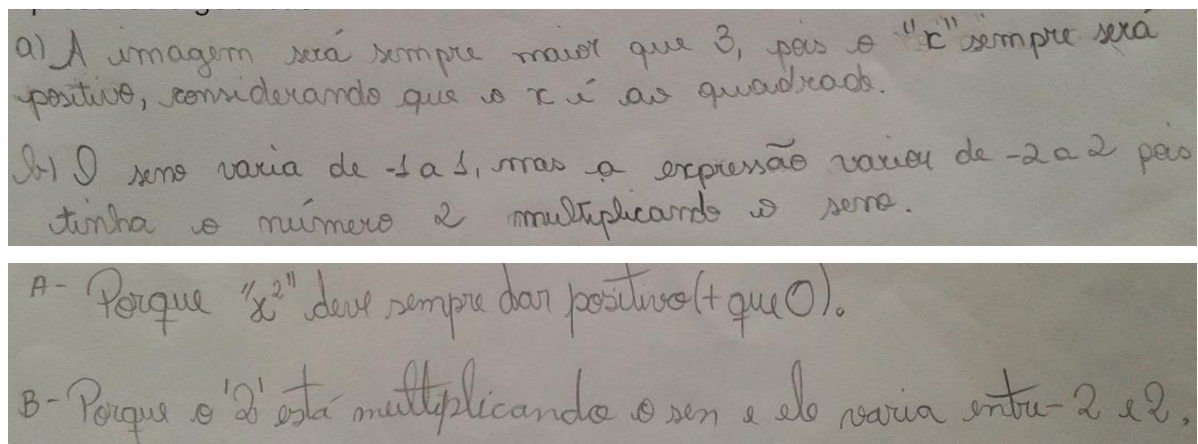 a) A imagem será sempre maior que 3, pois o "x" sempre será
positivo, considerando que o x é ao quadrado.
b) O seno varia de -1 a 1, mas a expressão variou de -2 a 2 pois
tinha o número 2 multiplicando o seno.
A- Porque "x²" deve sempre dar positivo (+ que 0).
B- Porque o '2' está multiplicando o sen e ele varia entre -2 e 2.